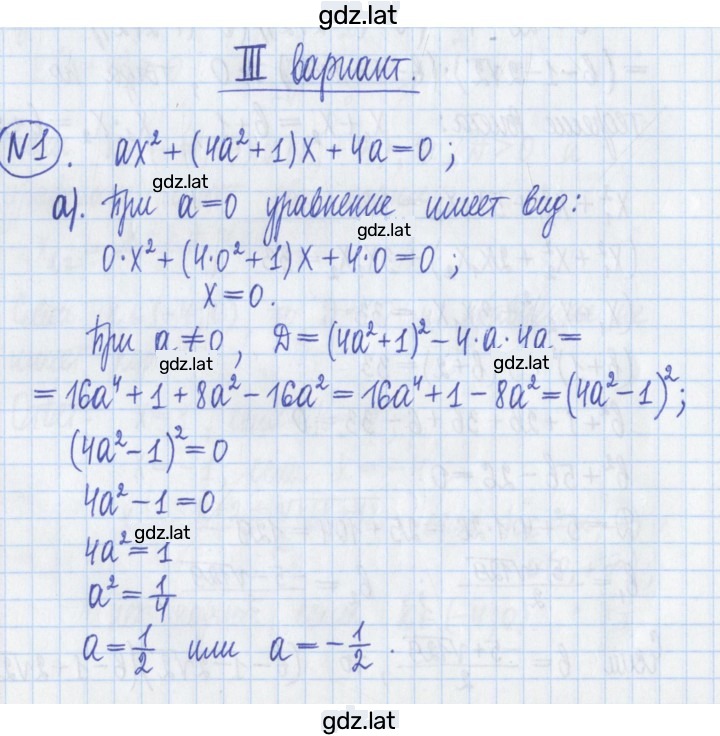 gdz.lat
III вариант.
N1. ax² + (4a² + 1)x + 4a = 0 ;
gdz.lat
а). При a = 0 уравнение имеет вид:
gdz.lat
0·x² + (4·0² + 1)x + 4·0 = 0 ;
x = 0.
При a ≠ 0, Д = (4a² + 1)² − 4·a·4a =
gdz.lat gdz.lat
= 16a⁴ + 1 + 8a² − 16a² = 16a⁴ + 1 − 8a² = (4a² − 1)²;
(4a² − 1)² = 0
4a² − 1 = 0
gdz.lat
4a² = 1
a² = 1/4
a = 1/2 или a = −1/2 .
gdz.lat